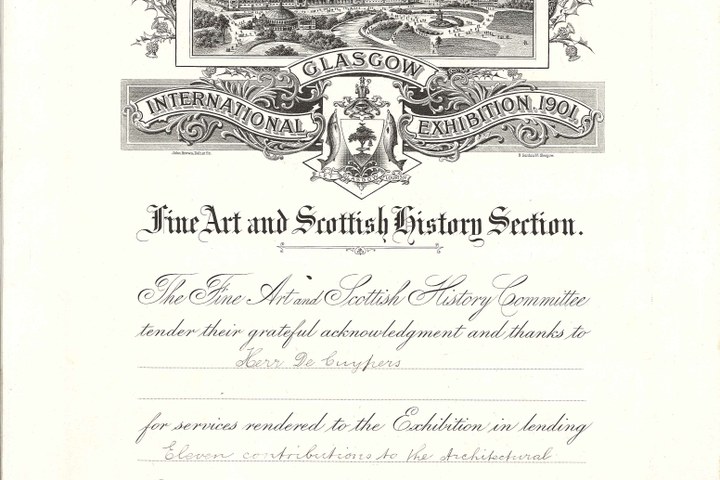 GLASGOW
INTERNATIONAL EXHIBITION. 1901.
Fine Art and Scottish History Section.
The Fine Art and Scottish History Committee
tender their grateful acknowledgment and thanks to
Herr De Cuypers
for services rendered to the Exhibition in lending
Eleven contributions to the Architectural